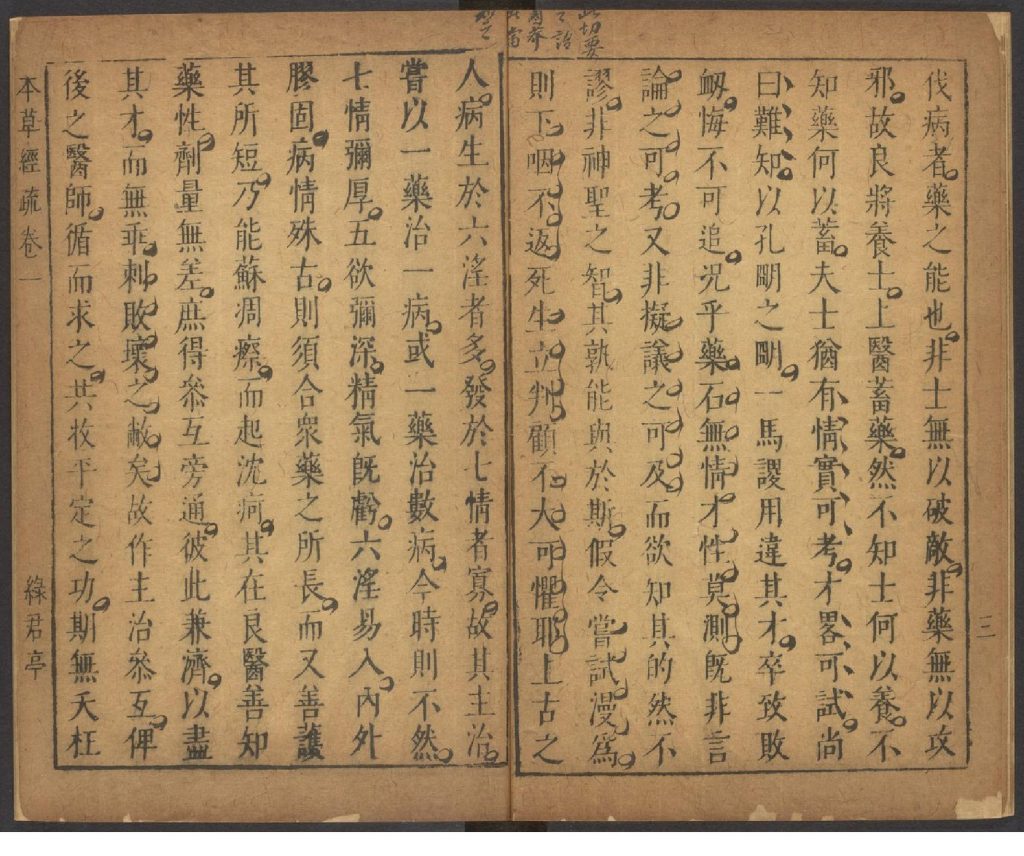 三
伐病者藥之能也非士無以破敵非藥無以攻
邪故良將養士上醫蓄藥然不知士何以養不
知藥何以蓄夫士猶有情實可考才畧可試尚
曰難知以孔朙之朙一馬謖用違其才卒致敗
衂悔不可追况乎藥石無情才性莫測旣非言
論之可考又非擬議之可及而欲知其的然不
謬非神聖之智其孰能與於斯假令嘗試漫爲
則下咽不返死生立判顧不大可懼耶上古之
此切要
人病生於六淫者多發於七情者寡故其主治
嘗以一藥治一病或一藥治數病今時則不然
七情彌厚五欲彌深精氣旣虧六淫易入內外
膠固病情殊古則須合衆藥之所長而又善護
其所短乃能蘇凋瘵而起沈疴其在良醫善知
藥性劑量無差庶得叅互旁通彼此兼濟以盡
其才而無乖剌敗壞之敝矣故作主治叅互俾
後之醫師循而求之共收平定之功期無夭枉
本草經疏卷一
綠君亭